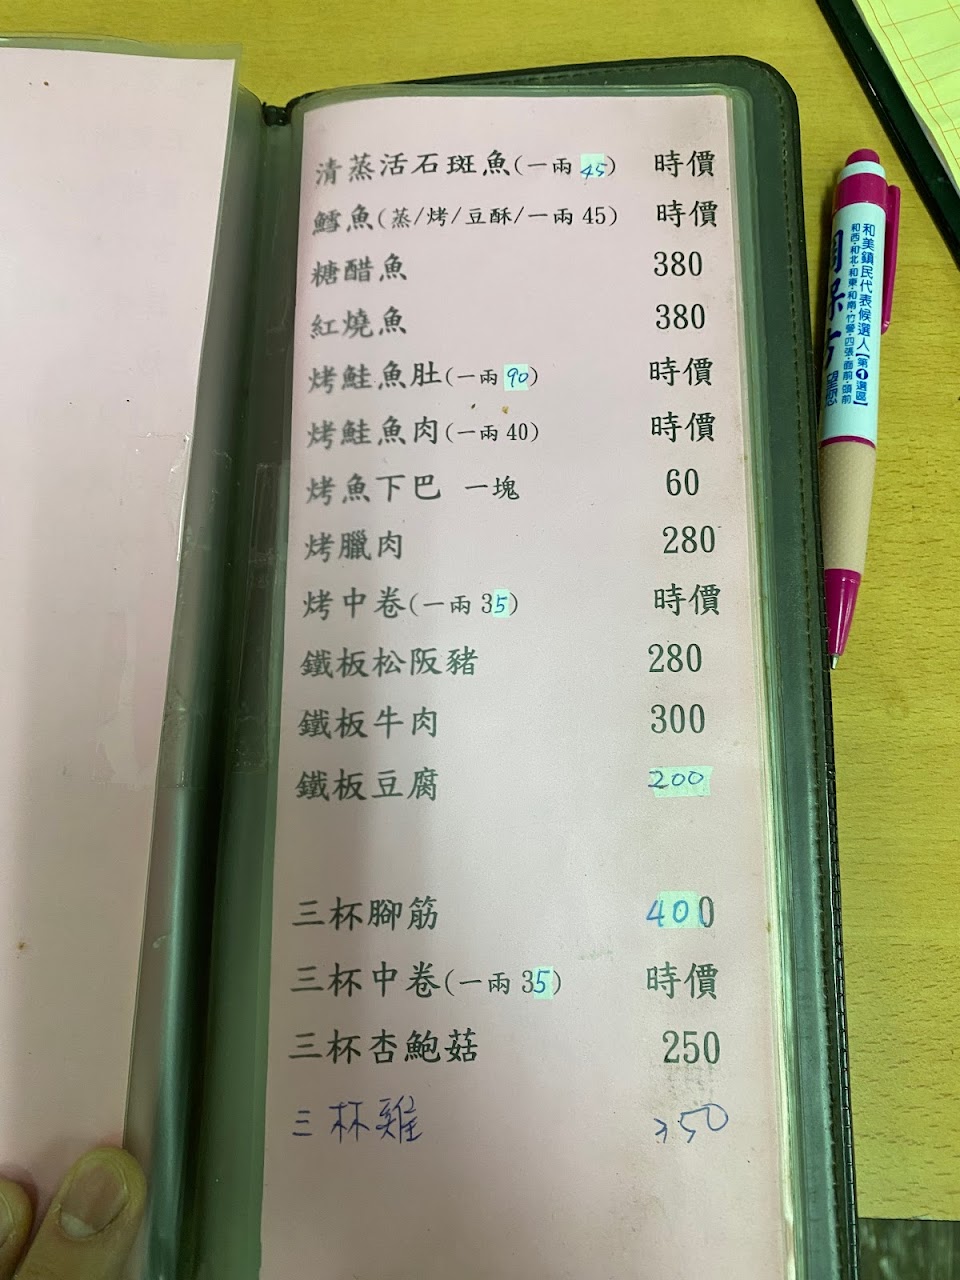 清蒸活石斑魚(一兩 45) 時價
鱈魚(蒸/烤/豆酥/一兩 45) 時價
糖醋魚 380
紅燒魚 380
烤鮭魚肚(一兩 90) 時價
烤鮭魚肉(一兩 40) 時價
烤魚下巴 一塊 60
烤臘肉 280
烤中卷(一兩 35) 時價
鐵板松阪豬 280
鐵板牛肉 300
鐵板豆腐 200
三杯腳筋 400
三杯中卷(一兩 35) 時價
三杯杏鮑菇 250
三杯雞 350
和美鎮民代表候選人【第1選區】
和西·和北·和東·和南·竹營·四張·面前·頭前